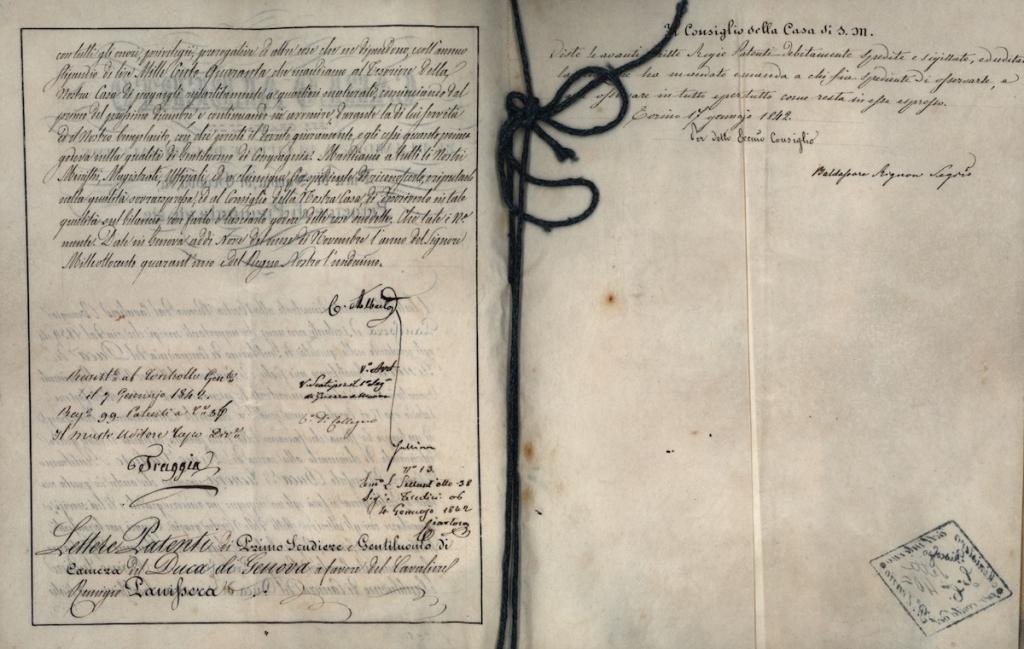 con tutti gli onori, privilegii, prerogative ed altre cose che ne dipendono, coll'annuo
stipendio di lire Mille Cento Quaranta che mandiamo al Tesoriere della
Nostra Casa di pagargli ripartitamente a quartieri maturati, cominciando dal
primo del prossimo Dicembre e continuando in avvenire, durante la di lui servitù
ed il Nostro beneplacito, con che presti il dovuto giuramento, e gli cessi quanto prima
godeva nella qualità di Gentiluomo di Compagnia. Mandiamo a tutti li Nostri
Ministri, Magistrati, Uffiziali, ed a chiunque fia spediente di riconoscerlo, e riputarlo
nella qualità sovraespressa, ed al Consiglio della Nostra Casa, di descriverlo in tale
qualità sul bilancio con farlo e lasciarlo godere dello con suddetto. Che tale è N.a
mente. Date in Genova addì Nove del mese di Novembre l'anno del Signore
Mille ottocento quarant'uno e del Regno Nostro l'undecimo.
C. Alberto
Regist.to al Controllo Gen.le
il 7 Gennajo 1842.
Reg.o 99 Patenti a C.ta 36
Il mastro Uditore Capo Div.e
Fraggia
V.a
di Guerra e Marina
V.a di Collegno
Gallina
N.o 13
Em.o L. Settant'otto 38
Sig.o Tredici 06
4 Gennajo 1842
Lettere Patenti di Primo Scudiere e Gentiluomo di
Camera del Duca di Genova a favore del Cavaliere
Remigio Panissera
Il Consiglio della Casa di S. M.
Viste le avanti scritte Regie Patenti debitamente spedite e sigillate, ed udita
la ha mandato e manda a chi fia spediente di osservarle, e
osservare in tutto e per tutto come resta in esse espresso.
Torino 17 gennajo 1842.
Per detto Eccmo Consiglio
Baldassare Rignon Segr.io